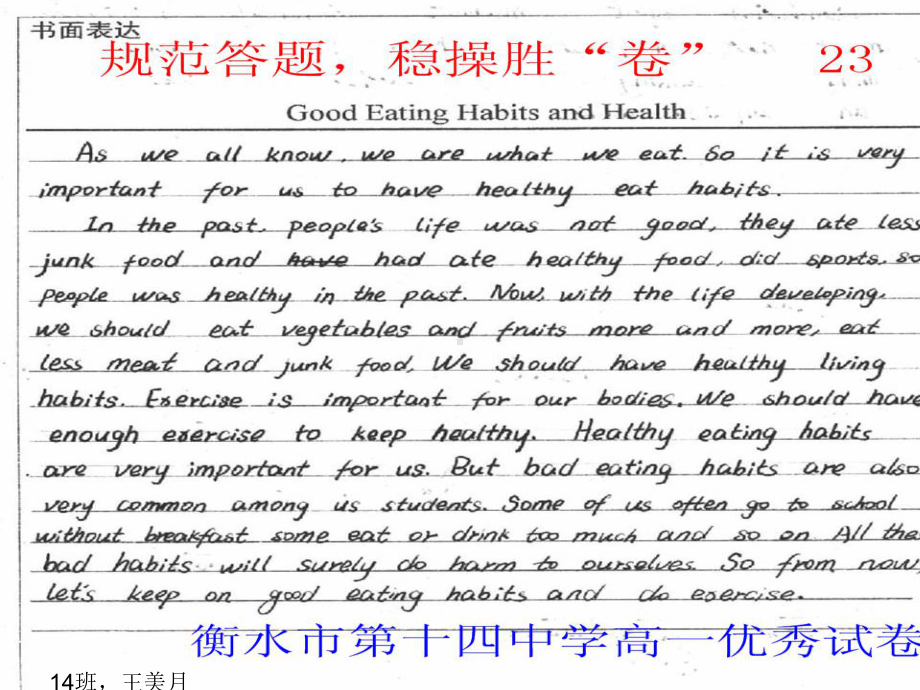 书面表达
规范答题，稳操胜“卷” 23
Good Eating Habits and Health
As we all know, we are what we eat. So it is very
important for us to have healthy eat habits.
In the past, people's life was not good, they ate less
junk food and have had ate healthy food, did sports, so
people was healthy in the past. Now, with the life developing,
we should eat vegetables and fruits more and more, eat
less meat and junk food, We should have healthy living
habits. Exercise is important for our bodies. We should have
enough exercise to keep healthy. Healthy eating habits
are very important for us. But bad eating habits are also
very common among us students. Some of us often go to school
without breakfast some eat or drink too much and so on All the
bad habits will surely do harm to ourselves. So from now,
let's keep on good eating habits and do exercise.
衡水市第十四中学高一优秀试卷
14班，王美月